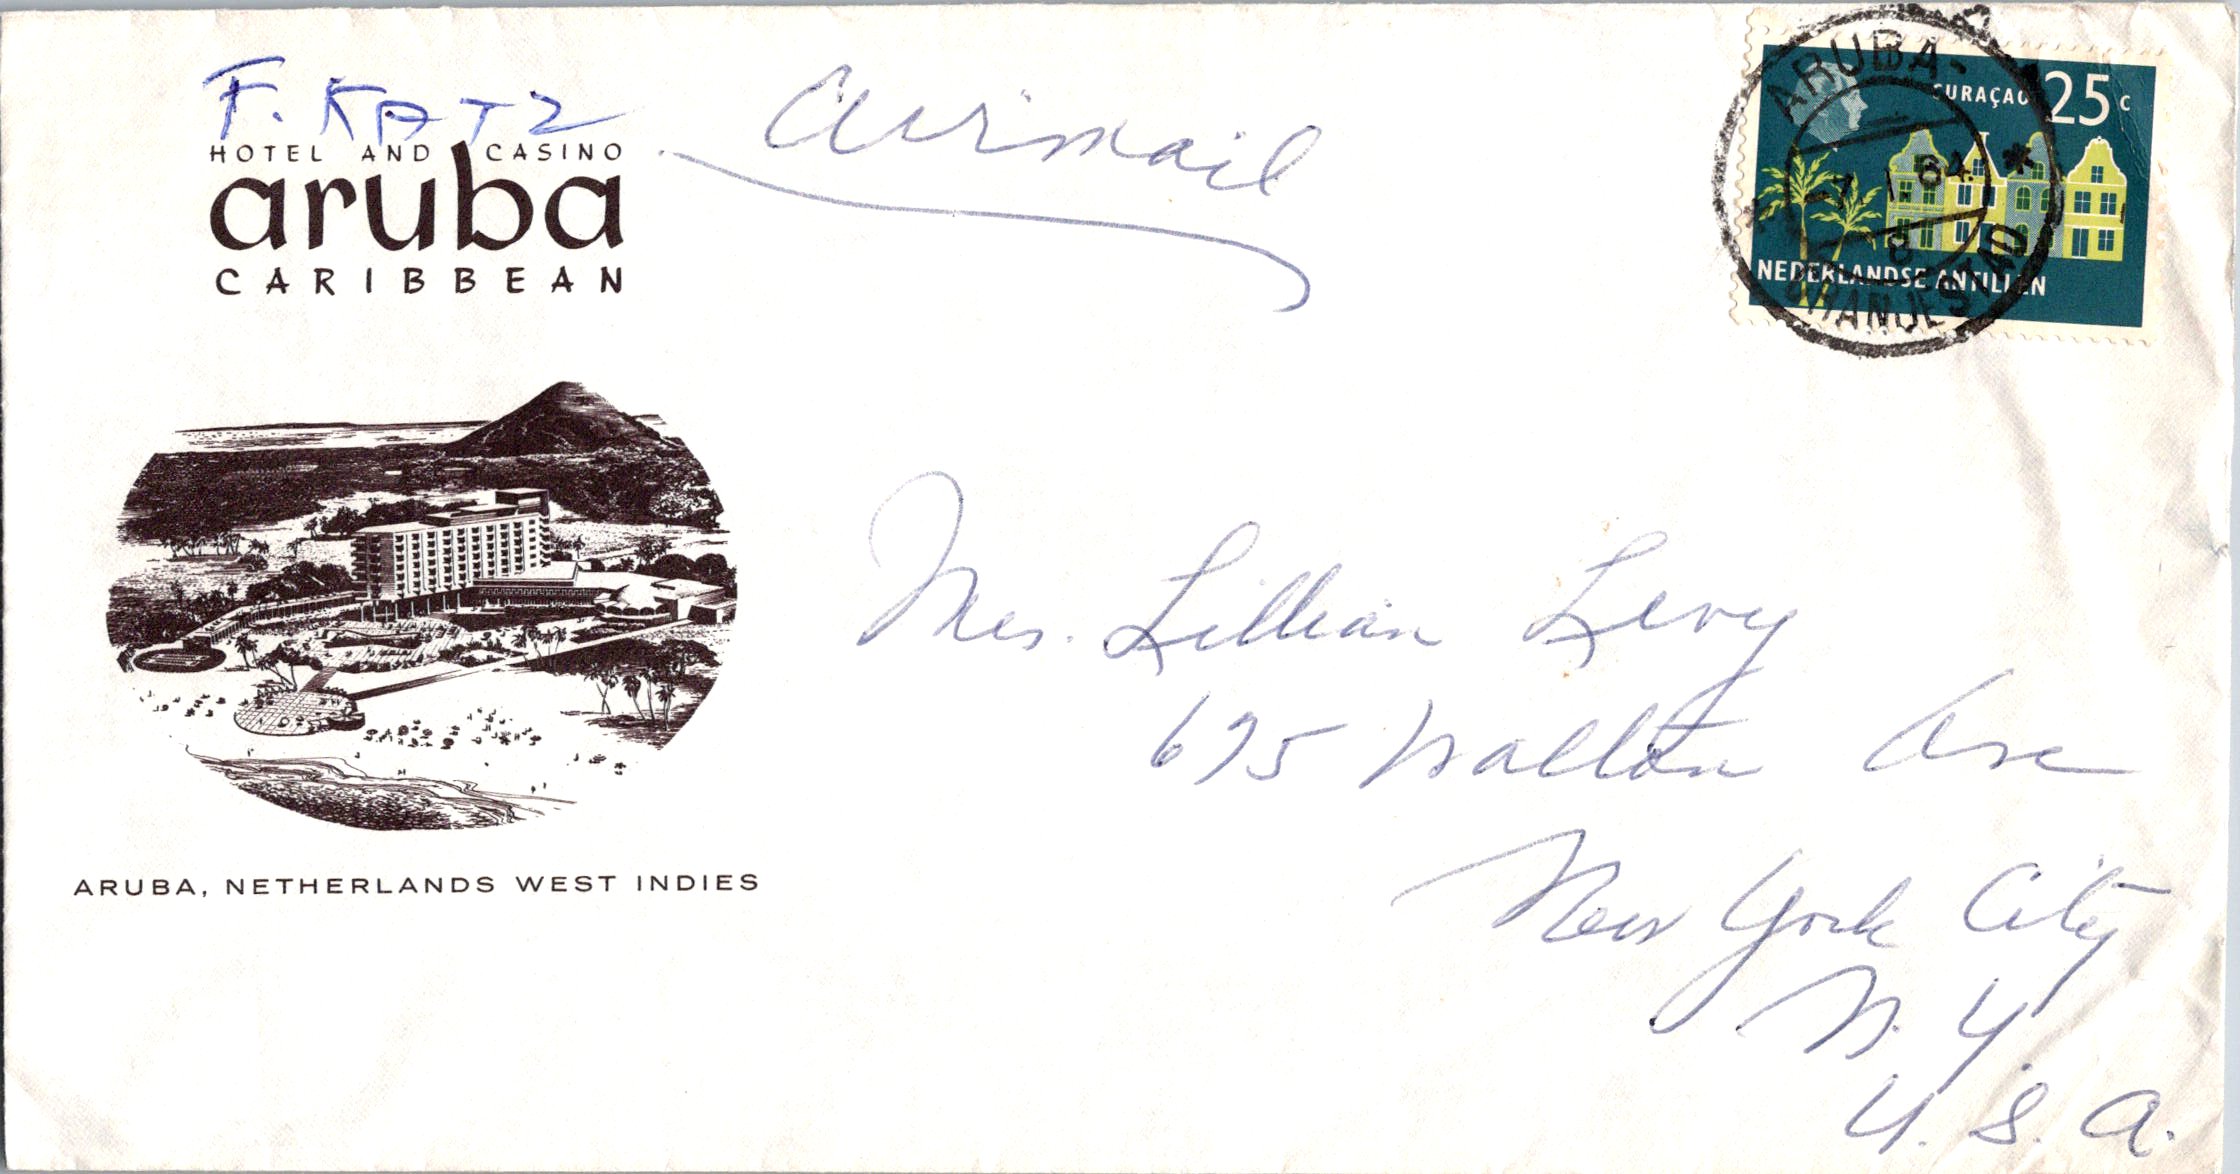 F. KATZ
HOTEL AND CASINO
aruba
CARIBBEAN
ARUBA, NETHERLANDS WEST INDIES
airmail
CURAÇAO 25 c
NEDERLANDSE ANTILLEN
ARUBA-
64.
8
ORANJESTAD
Mrs. Lillian Levy
695 Walton Ave
New York City
N. Y.
U. S. A.